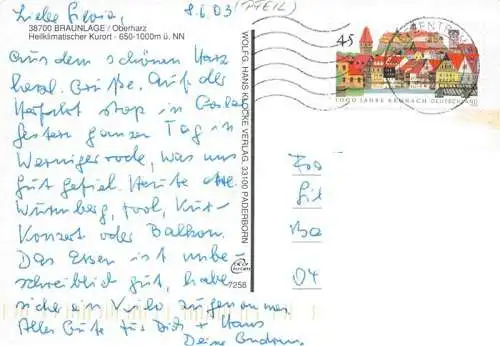 Liebe Silvia, 8.6.03 (PFEIL)
38700 BRAUNLAGE / Oberharz
Heilklimatischer Kurort - 650-1000m ü. NN
Aus dem schönen Harz
herzl. Grüße. Auf der
Hinfahrt stop in Goslar
gestern ganzer Tag in
Wernigerode, was uns
gut gefiel. Heute
Wurmberg, Pool, Kur-
Konzert oder Balkon.
Das Essen ist unbe-
schreiblich gut, habe
sicher ein Kilo zugenommen.
Alles Gute für Dich + Hans
Deine Gudrun
WOLFG. HANS KLOCKE VERLAG, 33100 PADERBORN
7258
45
1000 JAHRE KRONACH DEUTSCHLAND
04